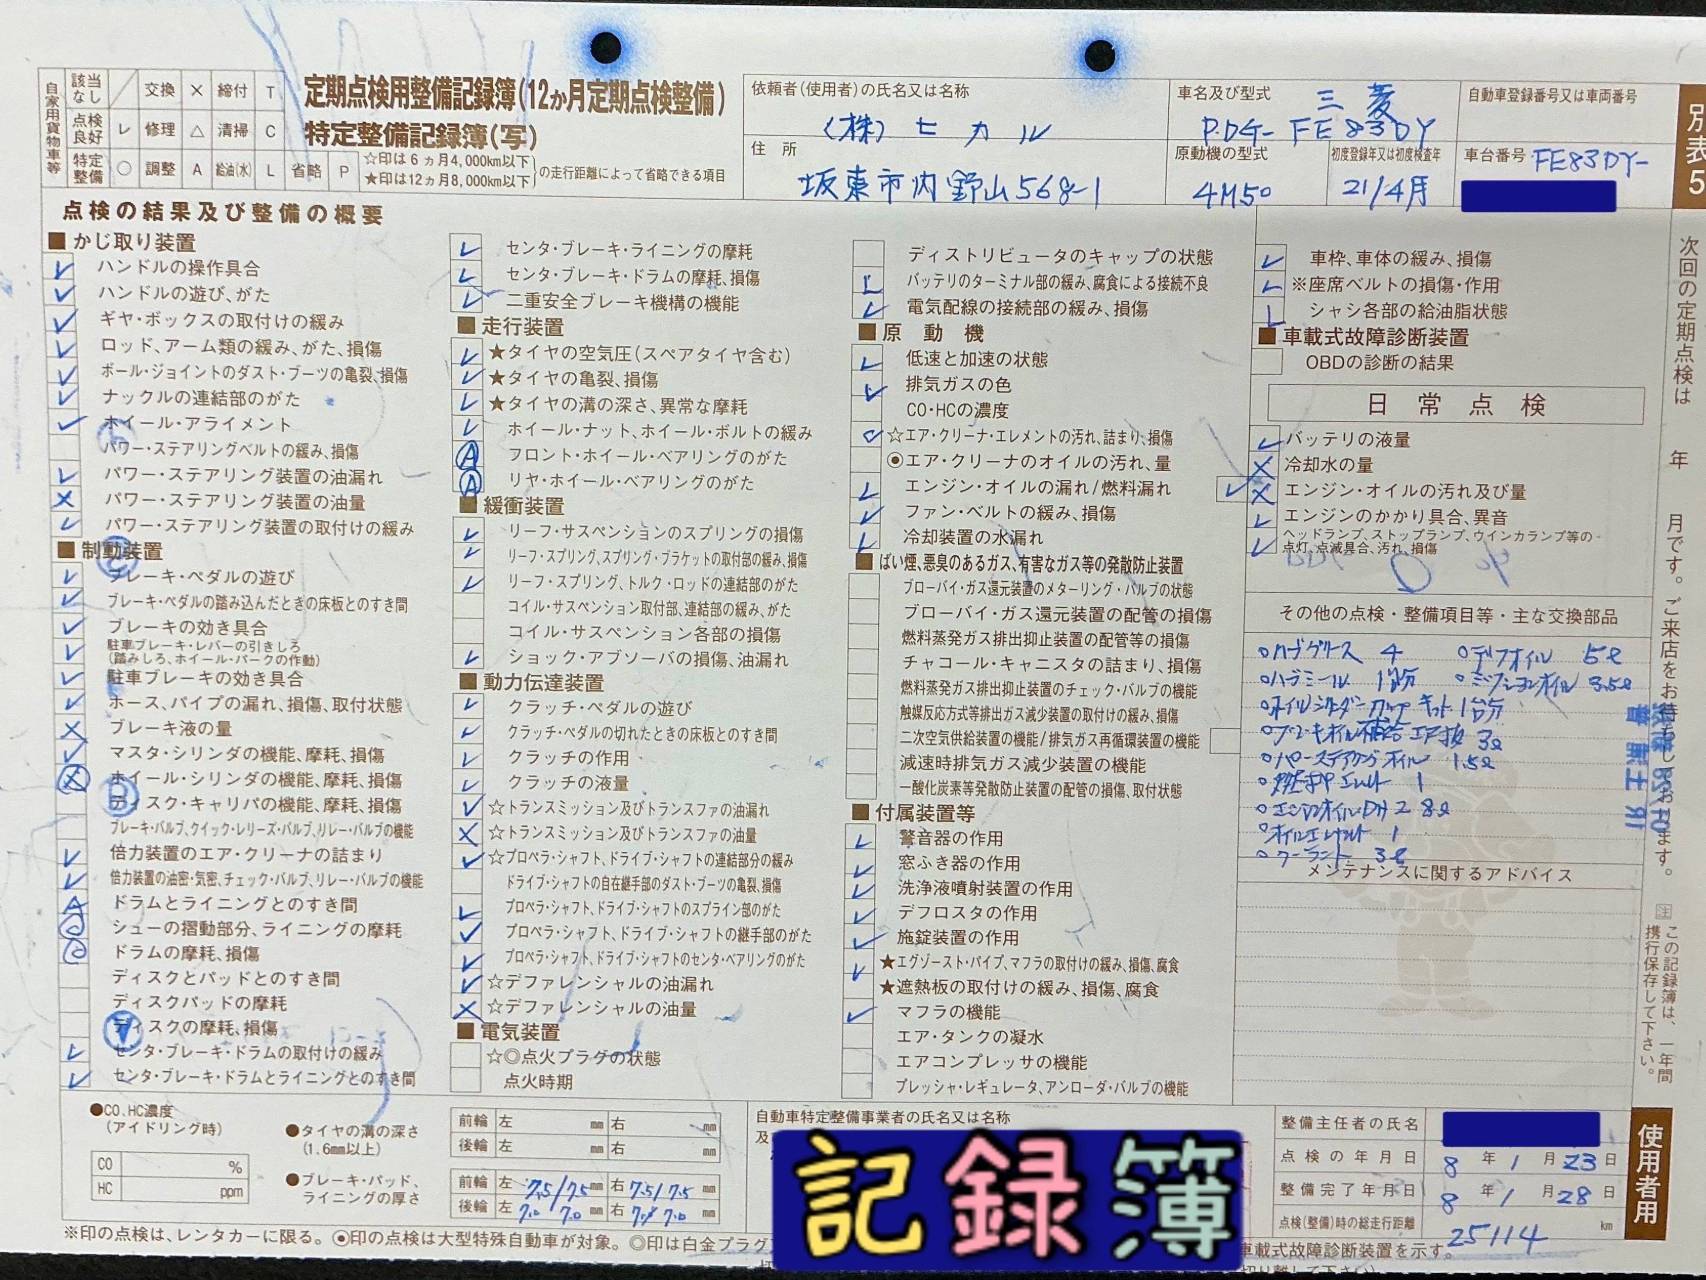 自家用貨物車等
該当なし ／ 交換 × 締付 T
点検良好 レ 修理 △ 清掃 C
特定整備 ○ 調整 A 給油(水) L 省略 P
定期点検用整備記録簿(12か月定期点検整備)
特定整備記録簿(写)
☆印は6ヵ月4,000km以下
★印は12ヵ月8,000km以下
の走行距離によって省略できる項目
依頼者(使用者)の氏名又は名称
(株) ヒカル
住所
坂東市内野山568-1
車名及び型式
三菱
PDG-FE83DY
原動機の型式
4M50
初度登録年又は初度検査年
21/4月
自動車登録番号又は車両番号
車台番号 FE83DY-
別表5
点検の結果及び整備の概要
■かじ取り装置
ハンドルの操作具合
ハンドルの遊び、がた
ギヤ・ボックスの取付けの緩み
ロッド、アーム類の緩み、がた、損傷
ボール・ジョイントのダスト・ブーツの亀裂、損傷
ナックルの連結部のがた
ホイール・アライメント
パワー・ステアリングベルトの緩み、損傷
パワー・ステアリング装置の油漏れ
パワー・ステアリング装置の油量
パワー・ステアリング装置の取付けの緩み
■制動装置
ブレーキ・ペダルの遊び
ブレーキ・ペダルの踏み込んだときの床板とのすき間
ブレーキの効き具合
駐車ブレーキ・レバーの引きしろ
(踏みしろ、ホイール・パークの作動)
駐車ブレーキの効き具合
ホース、パイプの漏れ、損傷、取付状態
ブレーキ液の量
マスタ・シリンダの機能、摩耗、損傷
ホイール・シリンダの機能、摩耗、損傷
ディスク・キャリパの機能、摩耗、損傷
ブレーキ・バルブ、クイック・レリーズ・バルブ、リレー・バルブの機能
倍力装置のエア・クリーナの詰まり
倍力装置の油密・気密、チェック・バルブ、リレー・バルブの機能
ドラムとライニングとのすき間
シューの摺動部分、ライニングの摩耗
ドラムの摩耗、損傷
ディスクとパッドとのすき間
ディスクパッドの摩耗
ディスクの摩耗、損傷
センタ・ブレーキ・ドラムの取付けの緩み
センタ・ブレーキ・ドラムとライニングとのすき間
センタ・ブレーキ・ライニングの摩耗
センタ・ブレーキ・ドラムの摩耗、損傷
二重安全ブレーキ機構の機能
■走行装置
★タイヤの空気圧(スペアタイヤ含む)
★タイヤの亀裂、損傷
★タイヤの溝の深さ、異常な摩耗
ホイール・ナット、ホイール・ボルトの緩み
フロント・ホイール・ベアリングのがた
リヤ・ホイール・ベアリングのがた
■緩衝装置
リーフ・サスペンションのスプリングの損傷
リーフ・スプリング、スプリング・ブラケットの取付部の緩み、損傷
リーフ・スプリング、トルク・ロッドの連結部のがた
コイル・サスペンション取付部、連結部の緩み、がた
コイル・サスペンション各部の損傷
ショック・アブソーバの損傷、油漏れ
■動力伝達装置
クラッチ・ペダルの遊び
クラッチ・ペダルの切れたときの床板とのすき間
クラッチの作用
クラッチの液量
☆トランスミッション及びトランスファの油漏れ
☆トランスミッション及びトランスファの油量
☆プロペラ・シャフト、ドライブ・シャフトの連結部分の緩み
ドライブ・シャフトの自在継手部のダスト・ブーツの亀裂、損傷
プロペラ・シャフト、ドライブ・シャフトのスプライン部のがた
プロペラ・シャフト、ドライブ・シャフトの継手部のがた
プロペラ・シャフト、ドライブ・シャフトのセンタ・ベアリングのがた
☆デファレンシャルの油漏れ
☆デファレンシャルの油量
■電気装置
☆◎点火プラグの状態
点火時期
ディストリビュータのキャップの状態
バッテリのターミナル部の緩み、腐食による接続不良
電気配線の接続部の緩み、損傷
■原動機
低速と加速の状態
排気ガスの色
CO・HCの濃度
☆エア・クリーナ・エレメントの汚れ、詰まり、損傷
◉エア・クリーナのオイルの汚れ、量
エンジン・オイルの漏れ/燃料漏れ
ファン・ベルトの緩み、損傷
冷却装置の水漏れ
■ばい煙、悪臭のあるガス、有害なガス等の発散防止装置
ブローバイ・ガス還元装置のメターリング・バルブの状態
ブローバイ・ガス還元装置の配管の損傷
燃料蒸発ガス排出抑止装置の配管等の損傷
チャコール・キャニスタの詰まり、損傷
燃料蒸発ガス排出抑止装置のチェック・バルブの機能
触媒反応方式等排出ガス減少装置の取付けの緩み、損傷
二次空気供給装置の機能/排気ガス再循環装置の機能
減速時排気ガス減少装置の機能
一酸化炭素等発散防止装置の配管の損傷、取付状態
■付属装置等
警音器の作用
窓ふき器の作用
洗浄液噴射装置の作用
デフロスタの作用
施錠装置の作用
★エグゾースト・パイプ、マフラの取付けの緩み、損傷、腐食
★遮熱板の取付けの緩み、損傷、腐食
マフラの機能
エア・タンクの凝水
エアコンプレッサの機能
プレッシャ・レギュレータ、アンローダ・バルブの機能
車枠、車体の緩み、損傷
※座席ベルトの損傷・作用
シャシ各部の給油脂状態
■車載式故障診断装置
OBDの診断の結果
日常点検
バッテリの液量
冷却水の量
エンジン・オイルの汚れ及び量
エンジンのかかり具合、異音
ヘッドランプ、ストップランプ、ウインカランプ等の
点灯、点滅具合、汚れ、損傷
その他の点検・整備項目等・主な交換部品
○ハブグリース 4 ○デフオイル 5ℓ
○ハブシール 1台分 ○ミッションオイル 3.5ℓ
○ホイルシリンダーカップキット1台分
○ブレーキオイル補給エア抜 3ℓ
○パワーステアリングオイル 1.5ℓ
○燃料エレメント 1
○エンジンオイルDH2 8ℓ
○オイルエレメント 1
○クーラント 3ℓ
メンテナンスに関するアドバイス
次回の定期点検は 年 月です。ご来店をお待ちしております。
注 この記録簿は、一年間
携行保存して下さい。
●CO、HC濃度
(アイドリング時)
CO %
HC ppm
●タイヤの溝の深さ
(1.6mm以上)
前輪 左 mm 右 mm
後輪 左 mm 右 mm
●ブレーキ・パッド、
ライニングの厚さ
前輪 左 7.5/7.5 mm 右 7.5/7.5 mm
後輪 左 7.0 7.0 mm 右 7.0 7.0 mm
自動車特定整備事業者の氏名又は名称
及
記録簿
整備主任者の氏名
点検の年月日 8年1月23日
整備完了年月日 8年1月28日
点検(整備)時の総走行距離 25114 km
使用者用
※印の点検は、レンタカーに限る。◉印の点検は大型特殊自動車が対象。◎印は白金プラグ
車載式故障診断装置を示す。